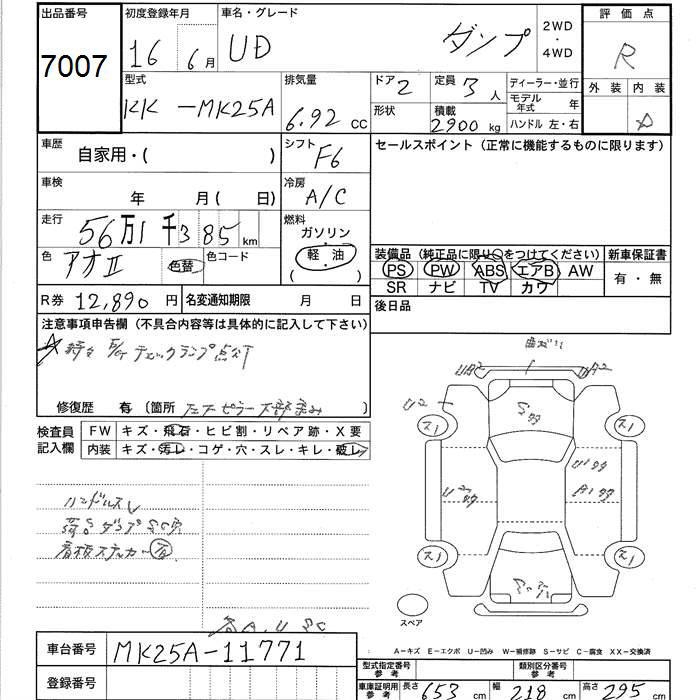 出品番号 初度登録年月 車名・グレード 評価点
7007 16 6月 UD ダンプ 2WD・4WD R
型式 排気量 ドア 2 定員 3人 ディーラー・並行 外装 内装
KK-MK25A 6.92 CC 形状 積載 2900 kg モデル年式 年
ハンドル 左・右
車歴 自家用・( ) シフト F6 セールスポイント(正常に機能するものに限ります)
車検 年 月( 日) 冷房 A/C
走行 56万1千385km 燃料 ガソリン
軽油
( )
色 アオII 色替 色コード
装備品(純正品に限り○をつけてください) 新車保証書
PS PW ABS エアB AW 有・無
SR ナビ TV カワ
R券 12,890円 名変通知期限 月 日 後日品
注意事項申告欄(不具合内容等は具体的に記入して下さい)
時々 チェックランプ点灯
修復歴 有 (箇所 )
検査員記入欄 FW キズ・飛石・ヒビ割・リペア跡・X要
内装 キズ・汚レ・コゲ・穴・スレ・キレ・破レ
ハンドルスレ
荷台ダンプ
看板ステッカー有
UA2 A2
U2
ス1 ス1
ス1 ス1
スペア
A-キズ E-エクボ U-凹み W-補修跡 S-サビ C-腐食 XX-交換済
車台番号 MK25A-11771
登録番号
型式指定番号 参考 類別区分番号 参考
車庫証明用 参考 長さ 653 cm 幅 218 cm 高さ 295 cm